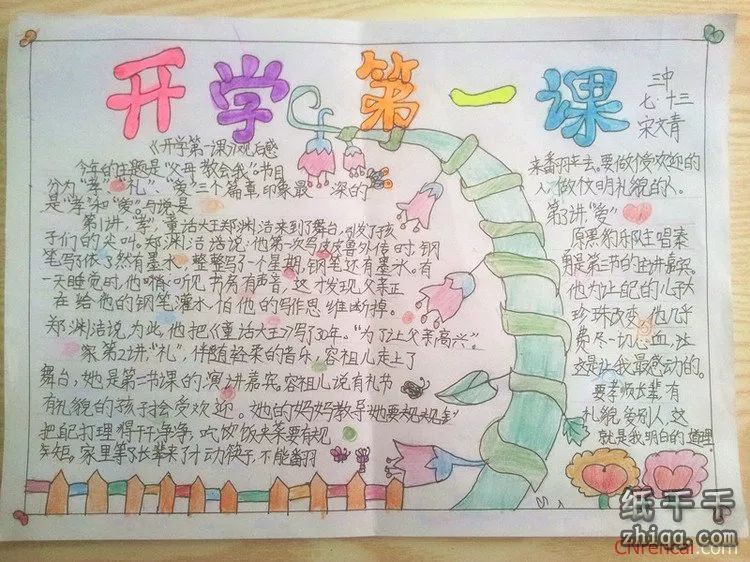 开学第一课
三中
七·十三
宋文青
《开学第一课》观后感
今年的主题是"父母教会我"。节目
分为"孝"、"礼"、"爱"三个篇章,印象最深的
是"孝"和"爱"。
第1讲,"孝",童话大王郑渊洁来到了舞台,引发了孩
子们的尖叫,郑渊洁说:他第一次写皮皮鲁外传时,钢
笔写了依了然有墨水,整整写了一个星期,钢笔还有墨水。有
一天睡觉时,他听见书房有声音,这才发现,父亲正
在给他的钢笔灌水,怕他的写作思维断掉。
郑渊洁说为此,他把《童话大王》写了30年。"为了让父亲高兴"。
第2讲,"礼",伴随轻柔的音乐,容祖儿走上了
舞台,她是第二节课的演讲嘉宾。容祖儿说有礼节
有礼貌的孩子会受欢迎。她的妈妈教导她要
把自己打理得干干净净,吃饭饭夹菜要有规
矩,家里等长辈来了才动筷子,不能翻
来翻去。要做个受欢迎的
人,做个文明礼貌的人。
第3讲"爱"
原黑豹乐队主唱秦
勇是第三节的主讲嘉宾。
他为让自己的儿子大
珍珠改变,他几乎
费尽一切心血,让
这是让我最感动的。
要孝顺长辈,有
礼貌,爱别人,这
就是我明白的道理
纸千千
zhiqq.com
CNrencai.com